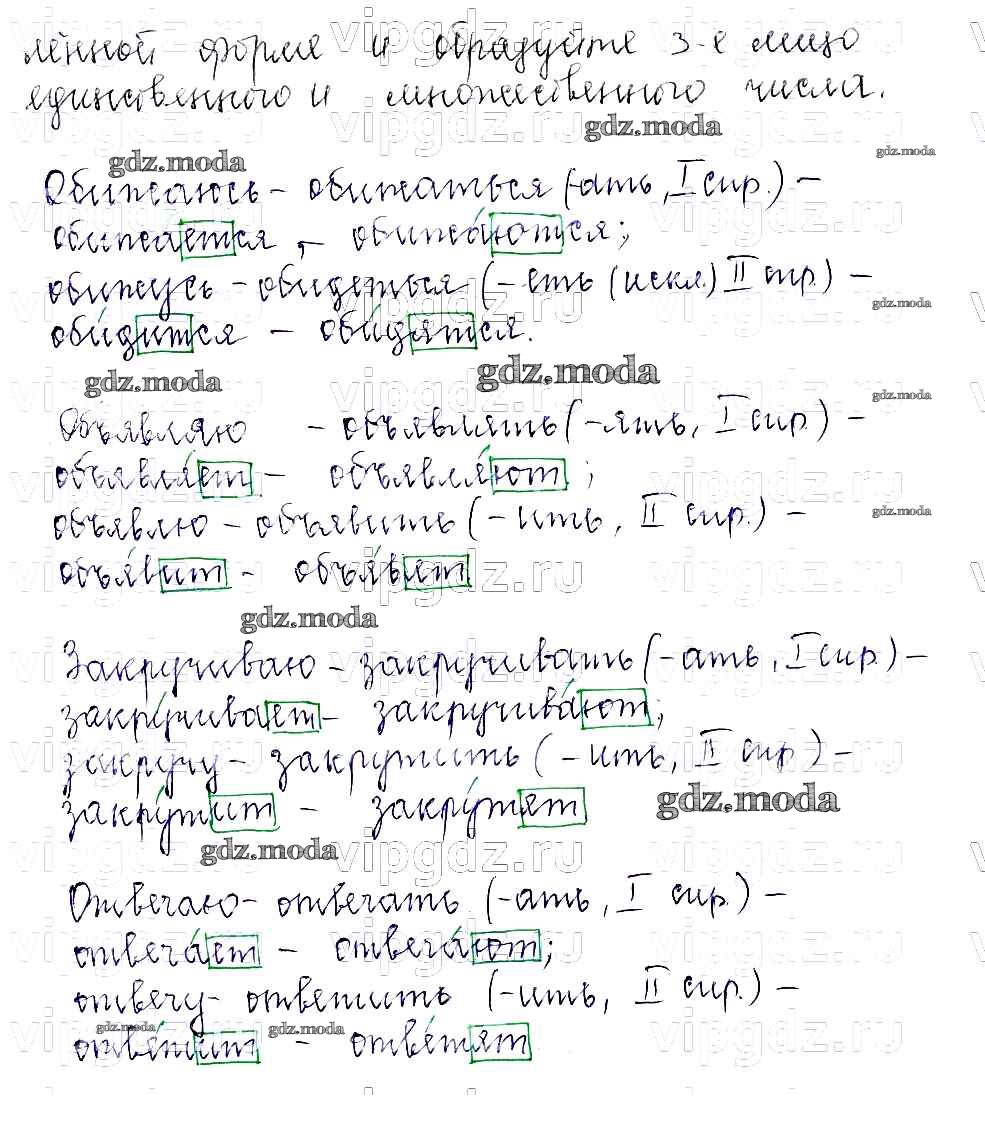 лённой форме и образуйте 3-е лицо
единственного и множественного числа.
gdz.moda
gdz.moda
gdz.moda
Обижаюсь - обижаться (-ать, I спр.) -
обижается, - обижаются;
обижусь - обидеться (-еть (искл.) II спр.) -
gdz.moda
обидится - обидятся.
gdz.moda
gdz.moda
gdz.moda
Объявляю - объявлять (-ять, I спр.) -
объявляет - объявляют;
объявлю - объявить (-ить, II спр.) -
gdz.moda
объявит - объявят
gdz.moda
Закручиваю - закручивать (-ать, I спр.) -
закручивает - закручивают;
закручу - закрутить (-ить, II спр.) -
закрутит - закрутят
gdz.moda
gdz.moda
Отвечаю - отвечать (-ать, I спр.) -
отвечает - отвечают;
отвечу - ответить (-ить, II спр.) -
gdz.moda
gdz.moda
ответит - ответят
vipgdz.ru